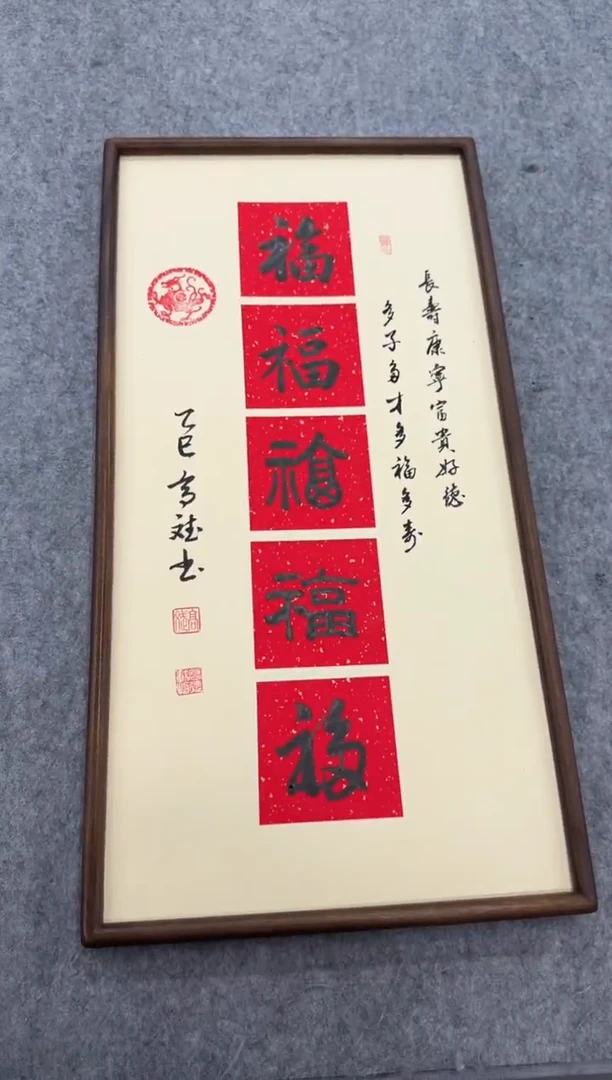 長壽康寧富貴好德
多子多才多福多壽
福
福
福
福
福
乙巳
書